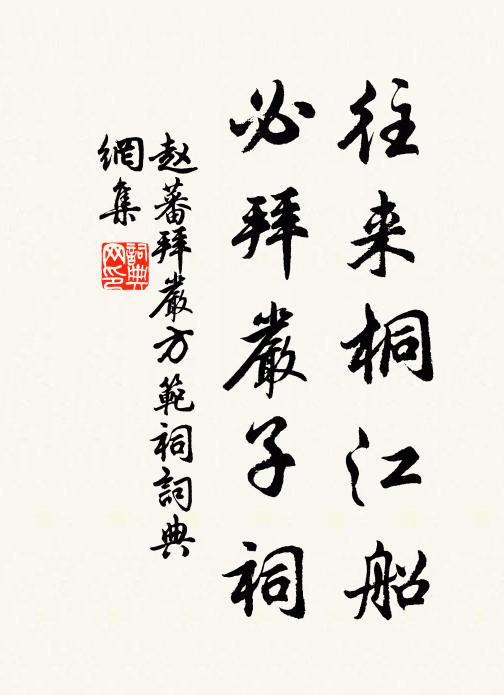 往来桐江船
必拜嚴子祠
赵蕃拜嚴方範祠詞典
網集
詞典
网印